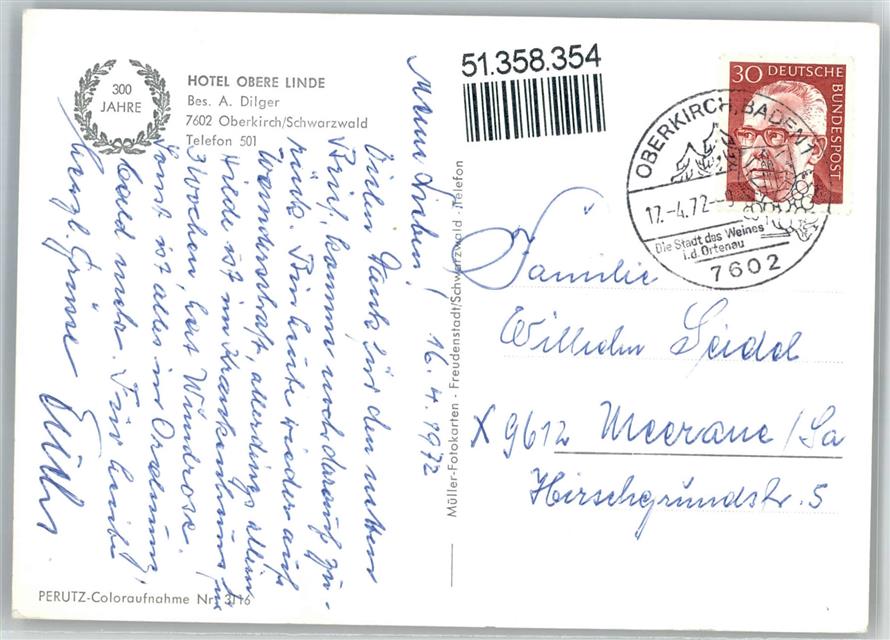 300
JAHRE
HOTEL OBERE LINDE
Bes. A. Dilger
7602 Oberkirch/Schwarzwald
Telefon 501
Meine Lieben! 16.4.1972
Vielen Dank für den netten
Brief, komme noch darauf zu-
rück. Bin heute wieder auf
Wanderschaft, allerdings allein
ist im Krankenhaus, nu
3 Wochen, hat Wundrose.
Sonst ist alles in Ordnung,
bald mehr. Für heute
herzl. Grüsse
PERUTZ-Coloraufnahme Nr. 3116
Müller-Fotokarten - Freudenstadt/Schwarzwald - Telefon
51.358.354
30 DEUTSCHE
BUNDESPOST
OBERKIRCH, BADEN 1
17.-4.72
Die Stadt des Weines
i.d. Ortenau
7602
Familie
Wilhelm Seidel
X 9612 Meerane/Sa
Hirschgrundstr. 5